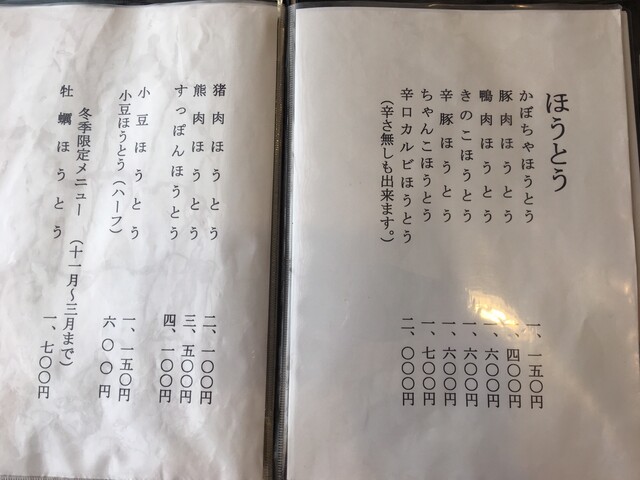 ほうとう
かぼちゃほうとう 一、一五〇円
豚肉ほうとう 一、四〇〇円
鴨肉ほうとう 一、六〇〇円
きのこほうとう 一、六〇〇円
辛豚ほうとう 一、六〇〇円
ちゃんこほうとう 一、七〇〇円
辛口カルビほうとう 二、〇〇〇円
（辛さ無しも出来ます。）
猪肉ほうとう 二、一〇〇円
熊肉ほうとう 三、五〇〇円
すっぽんほうとう 四、一〇〇円
小豆ほうとう 一、一五〇円
小豆ほうとう（ハーフ） 六〇〇円
冬季限定メニュー （十一月～三月まで）
牡蠣ほうとう 一、七〇〇円